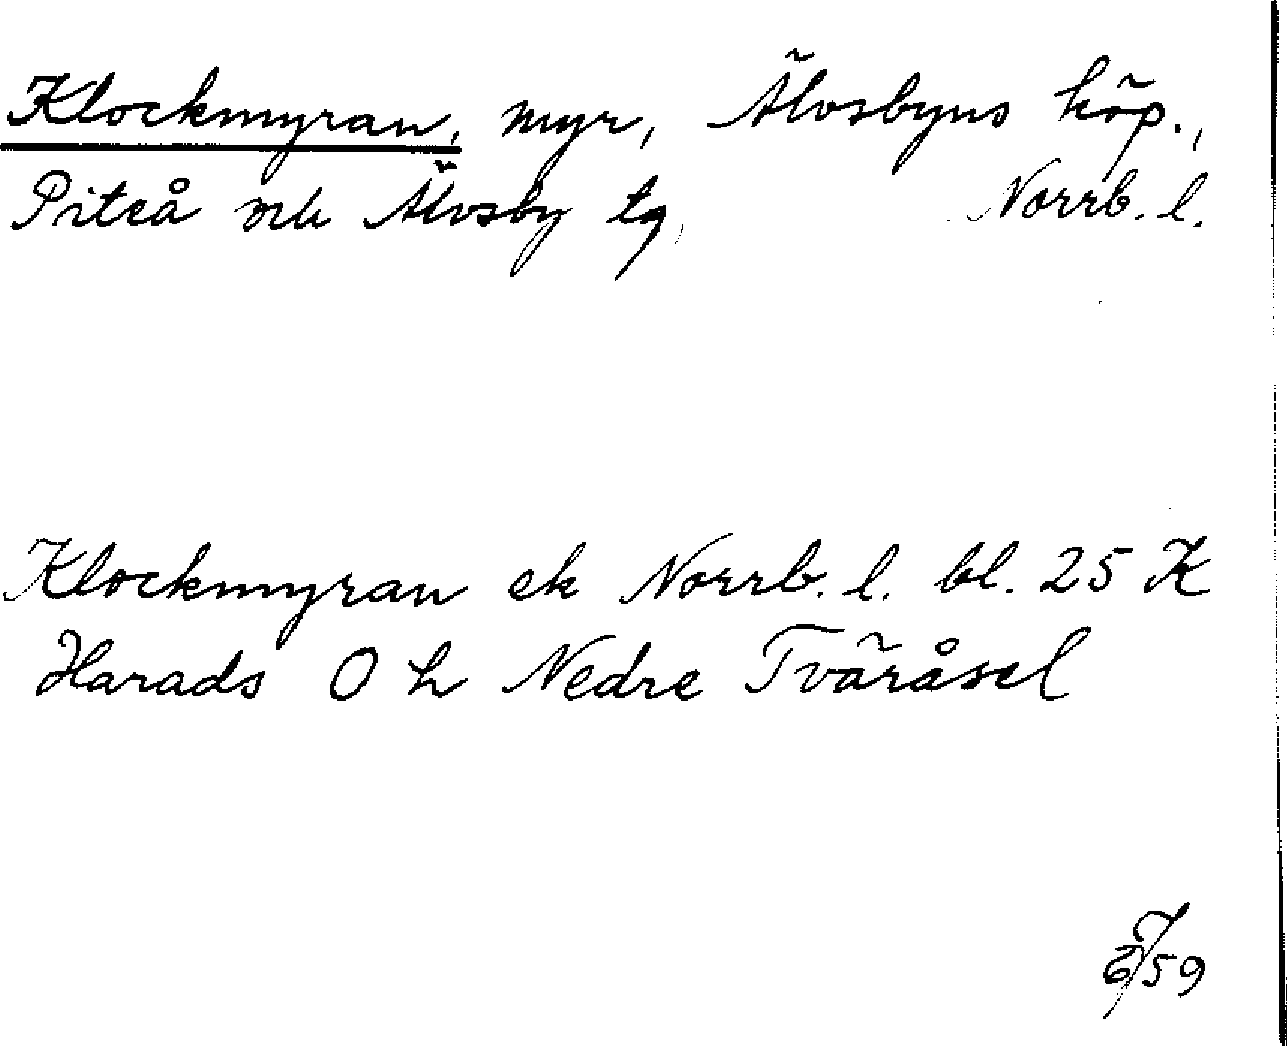 Klockmyran, myr, Älvsbyns köp.,
Piteå och Älvsby tg, Norrb. l.
Klockmyran ek Norrb. l. bl. 25 K
Harads O h Nedre Tväråsel
59